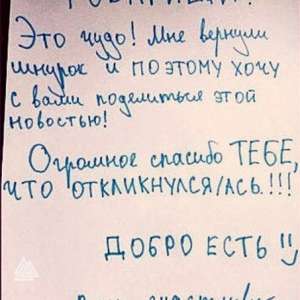 Это чудо! Мне вернули
шнурок и ПОЭТОМУ ХОЧУ
с вами поделиться этой
новостью!
Огромное спасибо ТЕБЕ,
ЧТО ОТКЛИКНУЛСЯ/АСЬ.!!!
ДОБРО ЕСТЬ !!